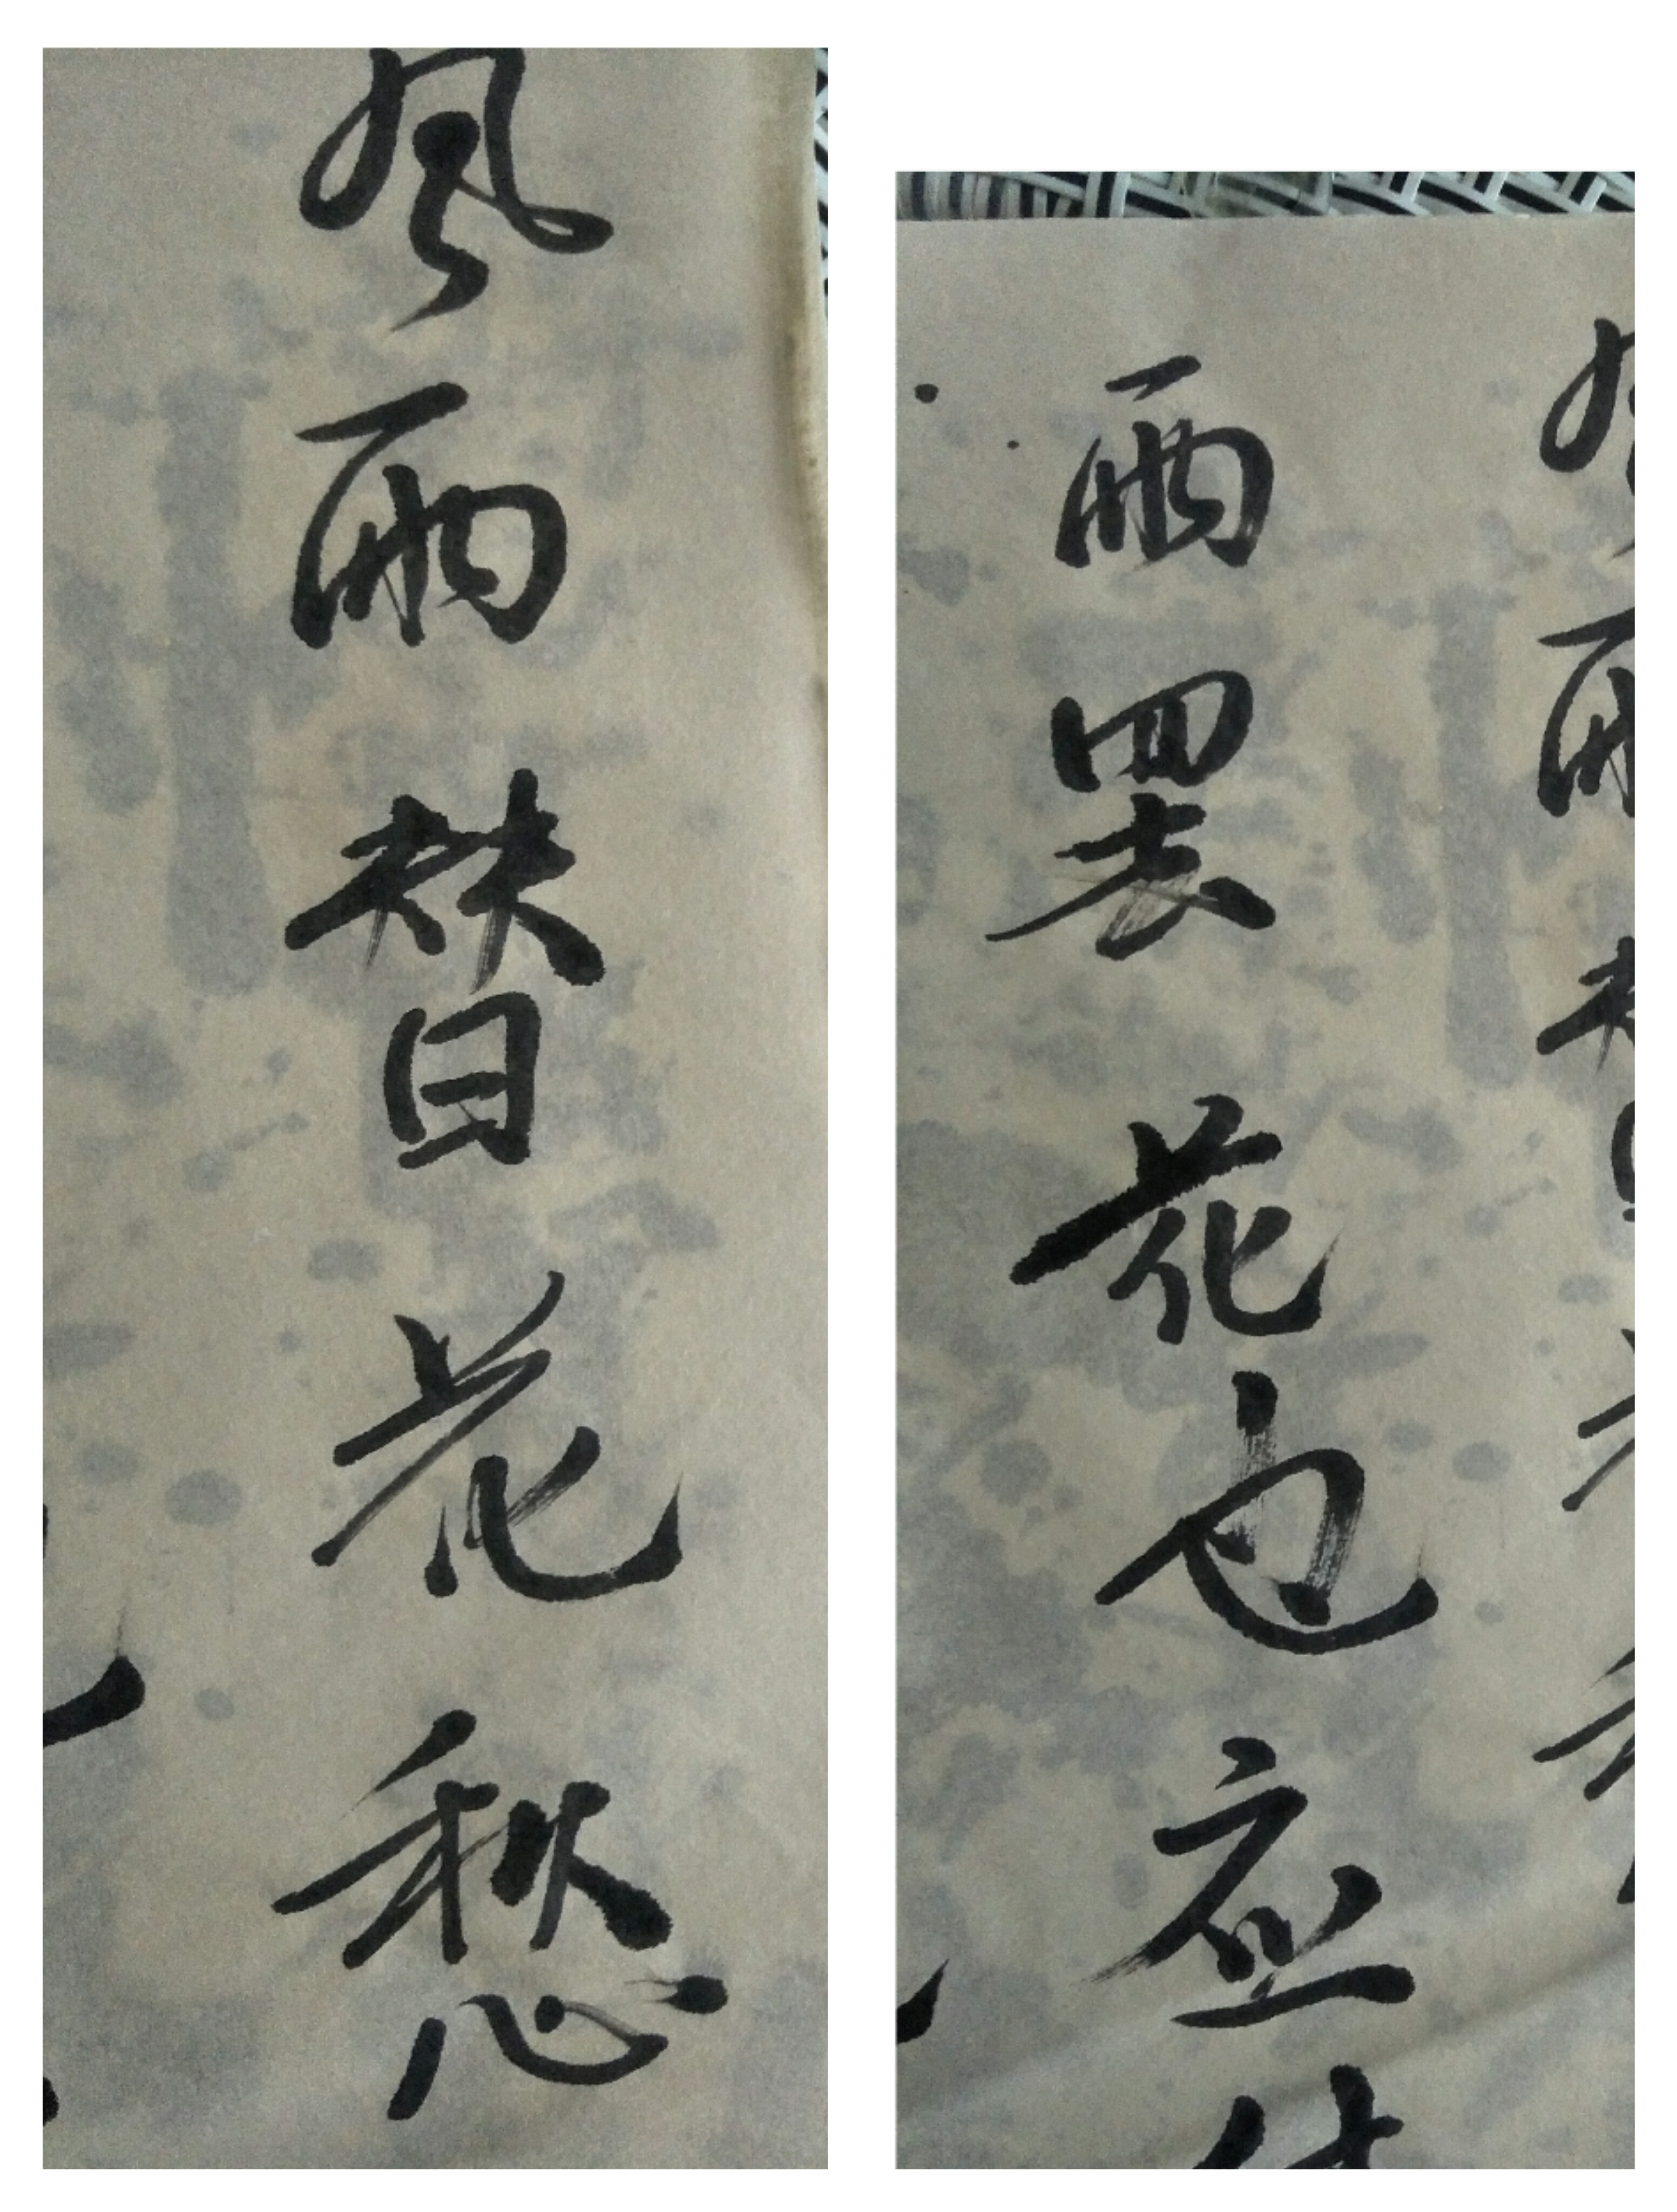 風雨替花愁
雨罢花也应